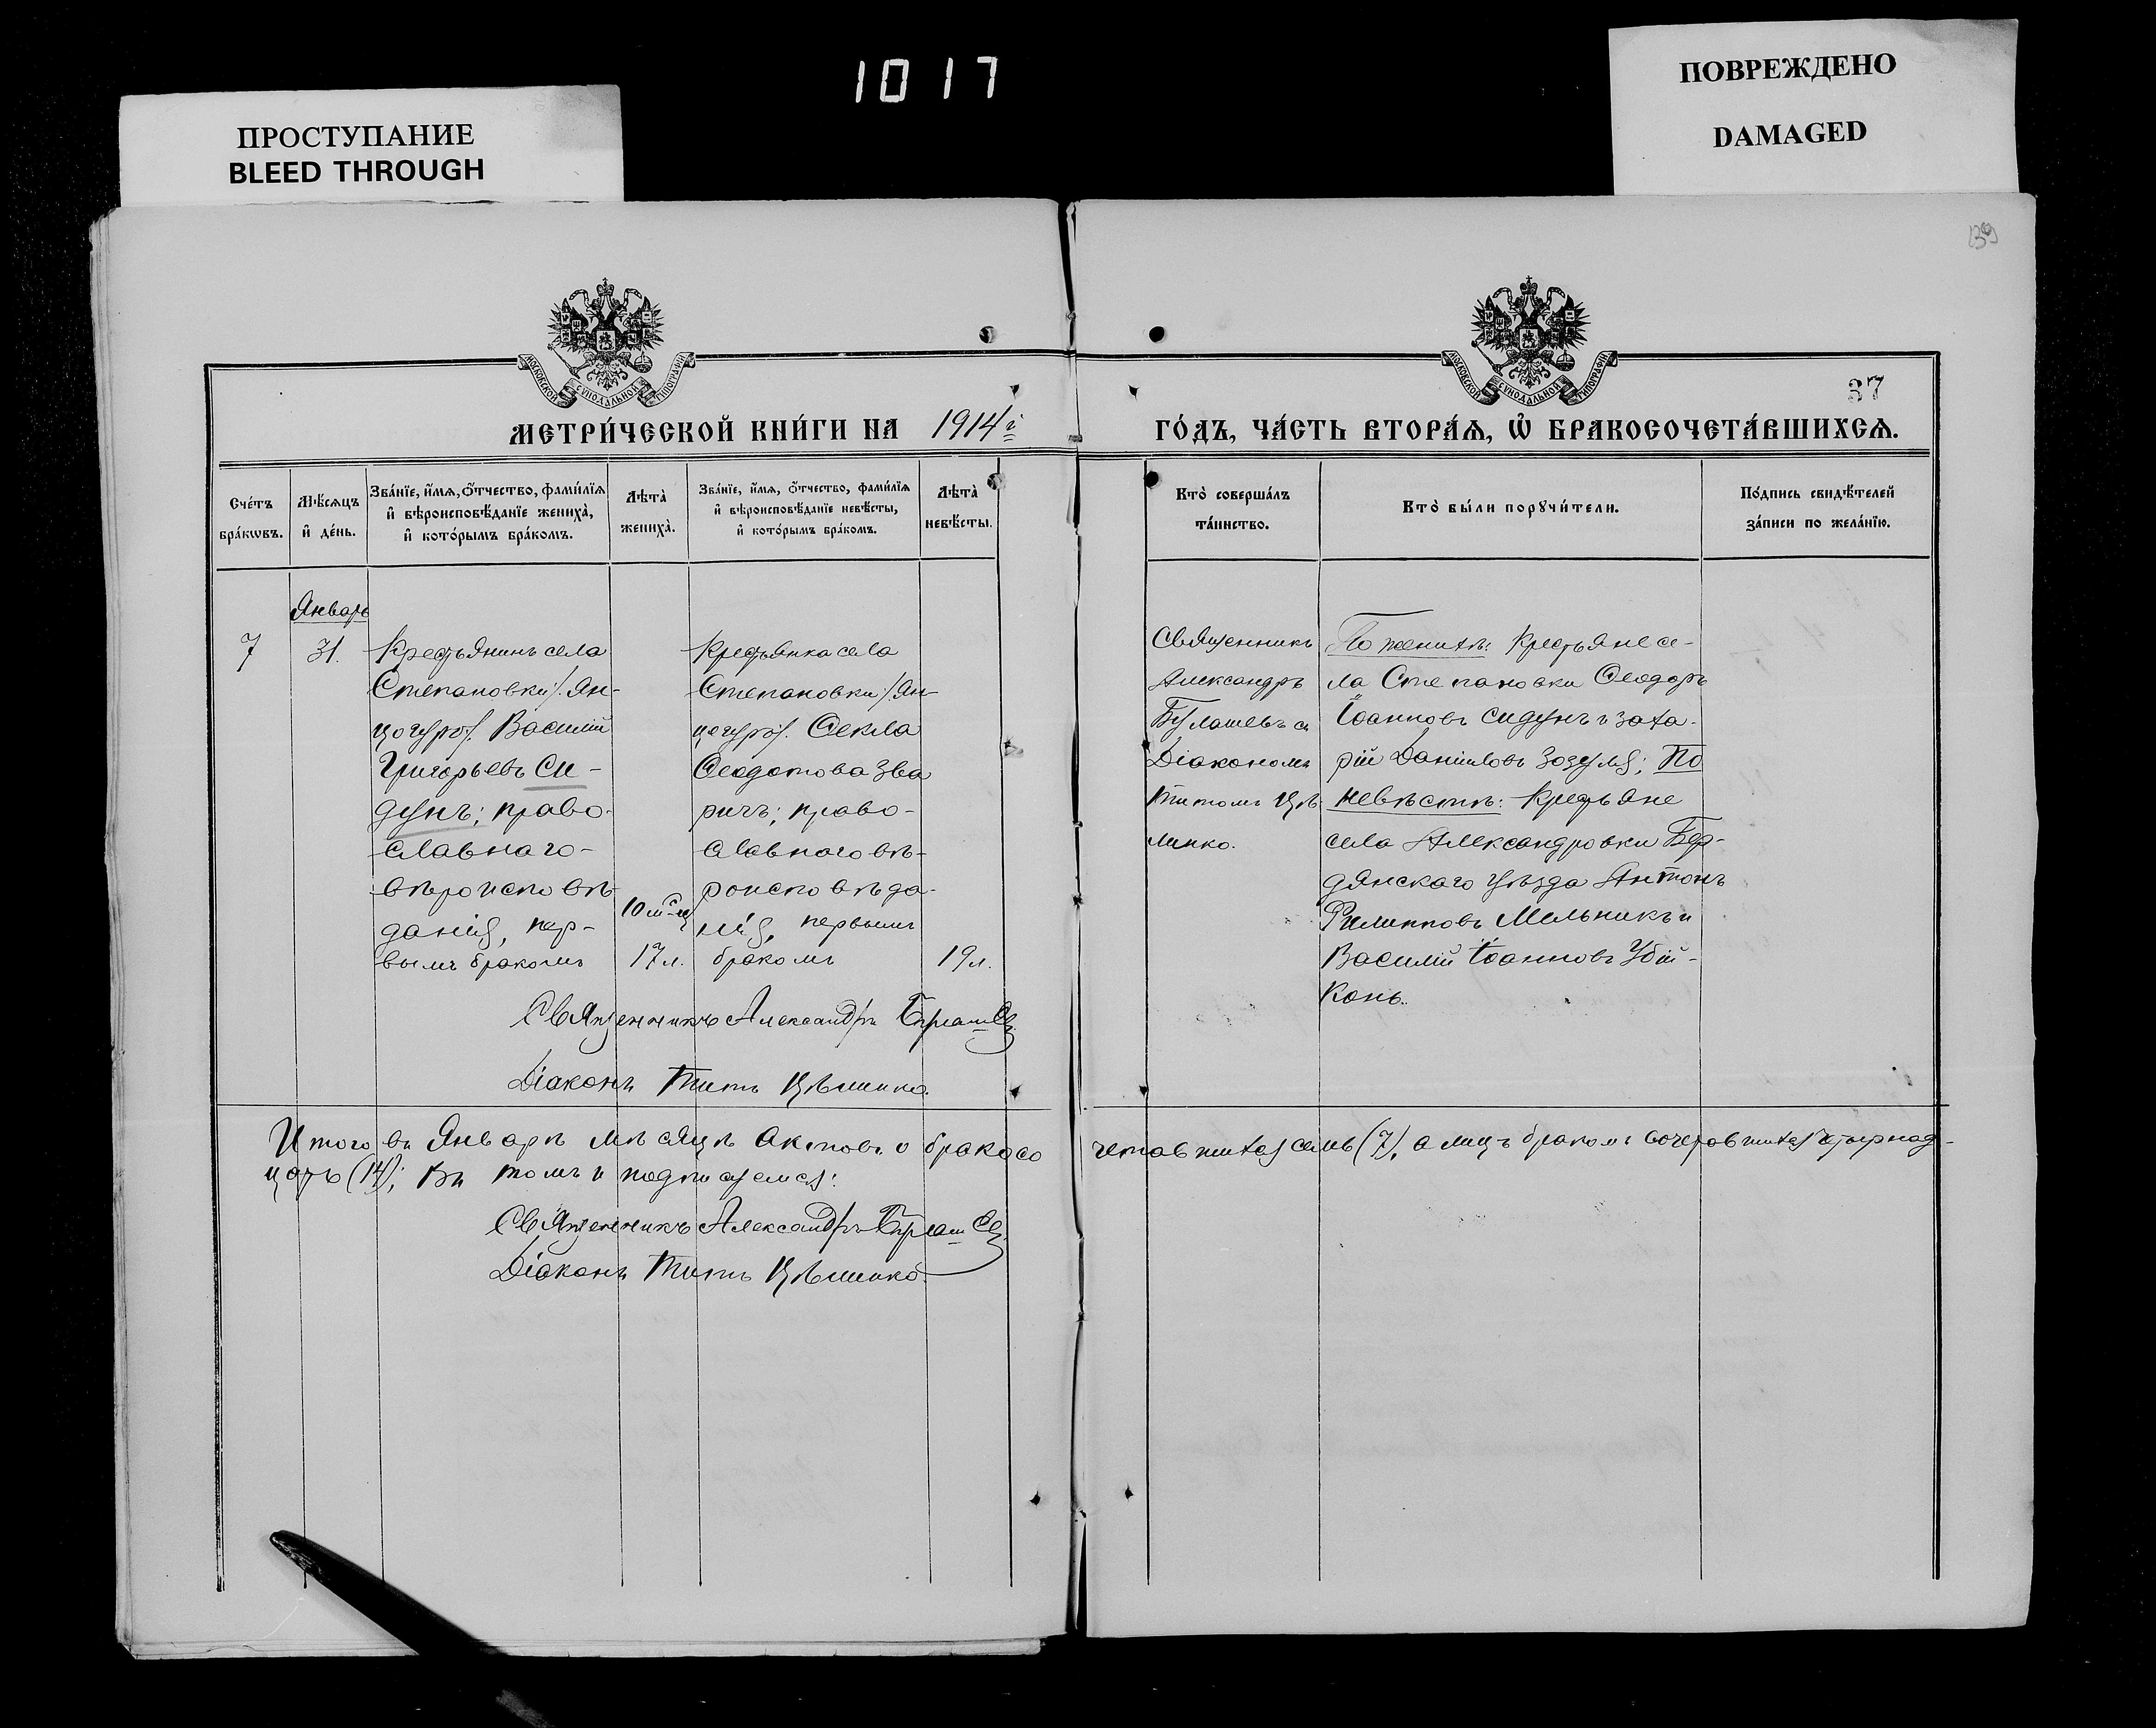 1017
ПРОСТУПАНИЕ
BLEED THROUGH
ПОВРЕЖДЕНО
DAMAGED
139
МОСКОВСКОЙ СУНОДАЛЬНОЙ ТИПОГРАФІИ
МОСКОВСКОЙ СУНОДАЛЬНОЙ ТИПОГРАФІИ
37
МЕТРИ́ЧЕСКОЙ КНИ́ГИ НА 1914й
ГО́ДЪ, ЧА́СТЬ ВТОРА́Ѧ, Ѡ҆ БРАКОСОЧЕТА́ВШИХСѦ.
Сче́тъ
бра́кѡвъ.
Мѣ́сѧцъ
и҆ де́нь.
Зва́нїе, и҆́мѧ, ѻ҆́тчество, фами́лїѧ
и҆ вѣроисповѣ́данїе жениха̀,
и҆ кото́рымъ бра́комъ.
Лѣта̀
жениха̀.
Зва́нїе, и҆́мѧ, ѻ҆́тчество, фами́лїѧ
и҆ вѣроисповѣ́данїе невѣ́сты,
и҆ кото́рымъ бра́комъ.
Лѣта̀
невѣ́сты.
Кто̀ соверша́лъ
та́инство.
Кто̀ бы́ли порꙋчи́тели.
По́дпись свидѣ́телей
за́писи по жела́нїю.
Январь
7
31.
Крестьянинъ села
Степановки /. Ян-
цогуро/. Василій
Григорьевъ Си-
дунъ; право-
славнаго-
вѣроисповѣ-
данія, пер-
вымъ бракомъ
17 л.
Крестьянка села
Степановки /. Ян-
цогуро/. Ѳекла
Ѳеодотова Зва
ричъ; право-
славнаго вѣ-
роисповѣда-
нія, первымъ
бракомъ
19 л.
Священникъ
Александръ
Булашевъ съ
Діакономъ
Титомъ Цѣ-
линко.
По женихѣ: Крестьяне се-
ла Степановки Ѳеодоръ
Іоанновъ Сидунъ и Заха-
рій Даніиловъ Зозуля; По
невѣстѣ: Крестьяне
села Александровки Бер-
дянскаго уѣзда Антонъ
Филипповъ Мельникъ и
Василій Іоанновъ Убій-
конь.
Священникъ Александръ Булашевъ
Діаконъ Титъ Цѣлинко.
Итого въ Январѣ мѣсяцѣ актовъ о бракосо
четавшихся семь (7), а лицъ бракомъ сочетавшихся четырнад-
цать (14); Въ томъ и подписуемся:
Священникъ Александръ Булашевъ
Діаконъ Титъ Цѣлинко.